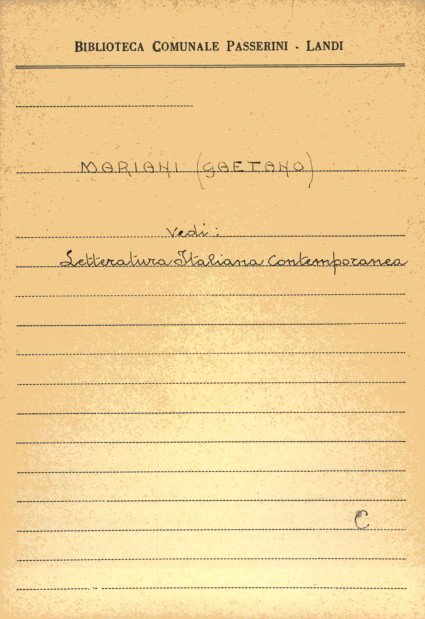 BIBLIOTECA COMUNALE PASSERINI - LANDI
MARIANI (GAETANO)
Vedi:
Letteratura Italiana Contemporanea
C